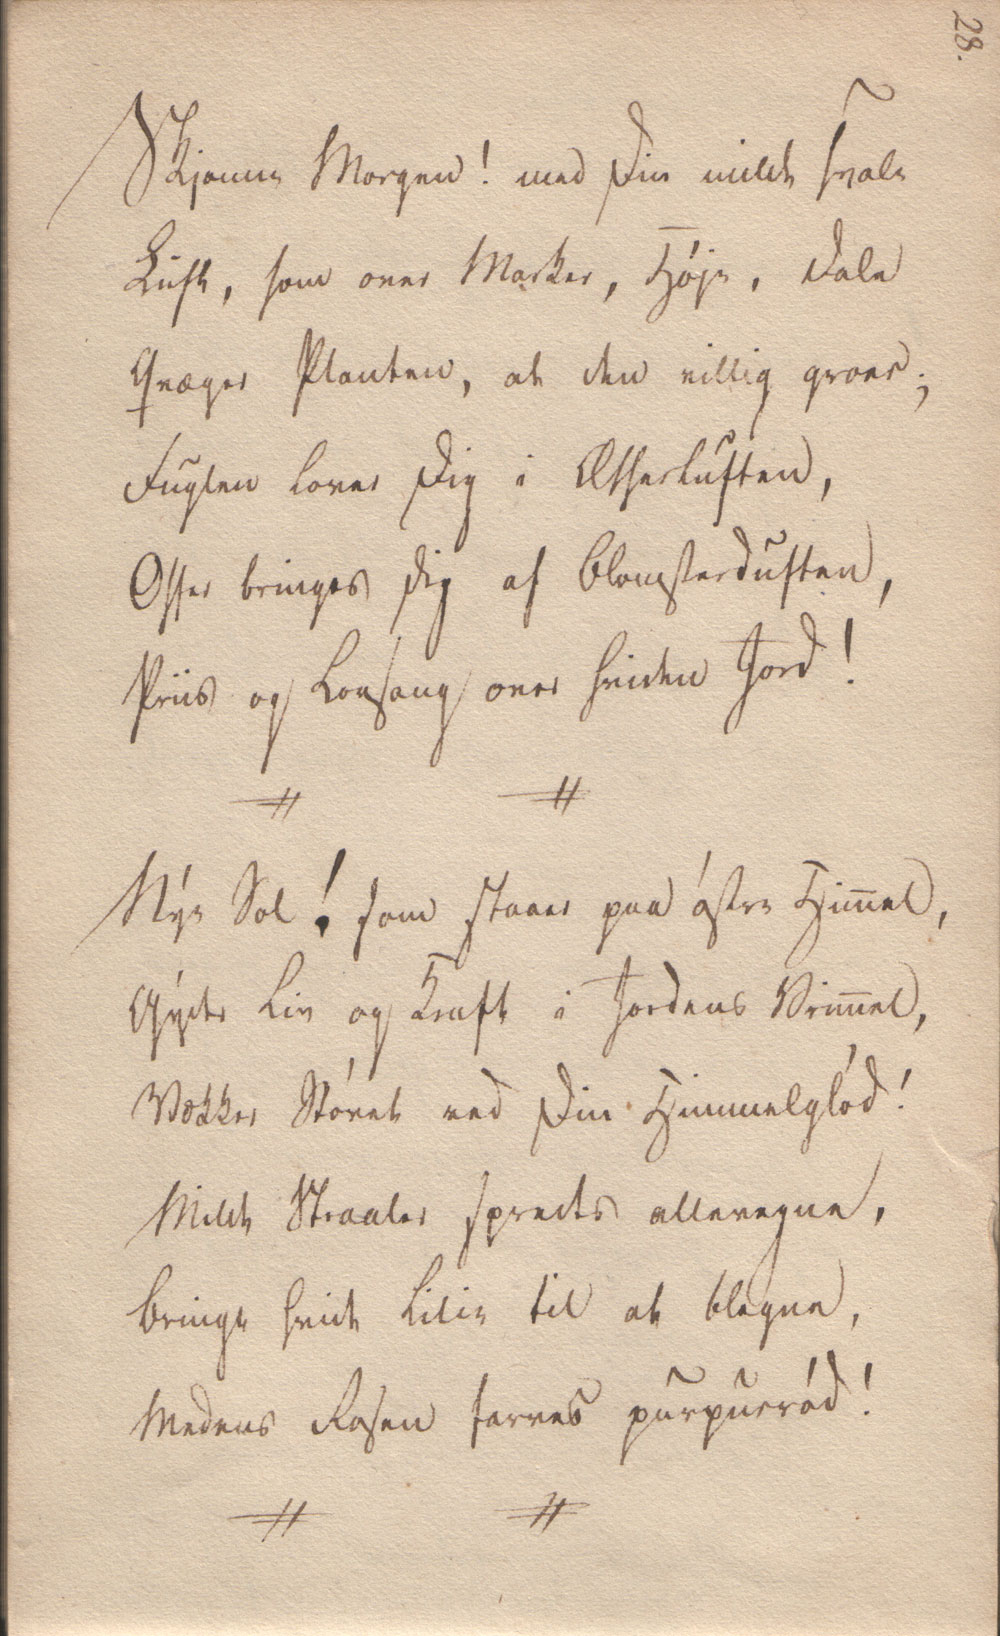 28.
Skjønne Morgen! med Din milde svale
Luft, som over Marker, Høje, Dale
Qvæger Planten, at den villig groer;
Fuglen lover Dig i Ætherluften,
Offer bringes Dig af Blomsterduften,
Priis og Lovsang over hviden Jord!
Nye Sol! som staaer paa østre Him̅el,
Gyder Liv og Kraft i Jordens Vrim̅el,
Vækker Støvet ved Din Himmelglød!
Milde Straaler spredes allevegne,
Bringe hvide Lilie til at blegne,
Medens Rosen farves purpurrød!